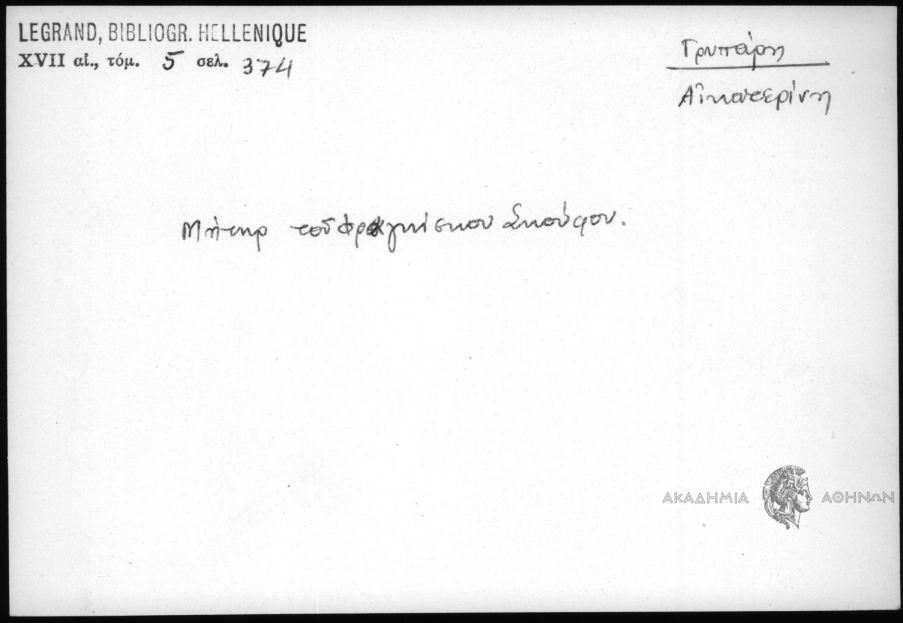 LEGRAND, BIBLIOGR. HELLENIQUE
XVII αἰ., τόμ. 5 σελ. 374
Γρυπάρη
Αἰκατερίνη
Μήτηρ τοῦ Φραγκίσκου Σκούφου.
ΑΚΑΔΗΜΙΑ ΑΘΗΝΩΝ